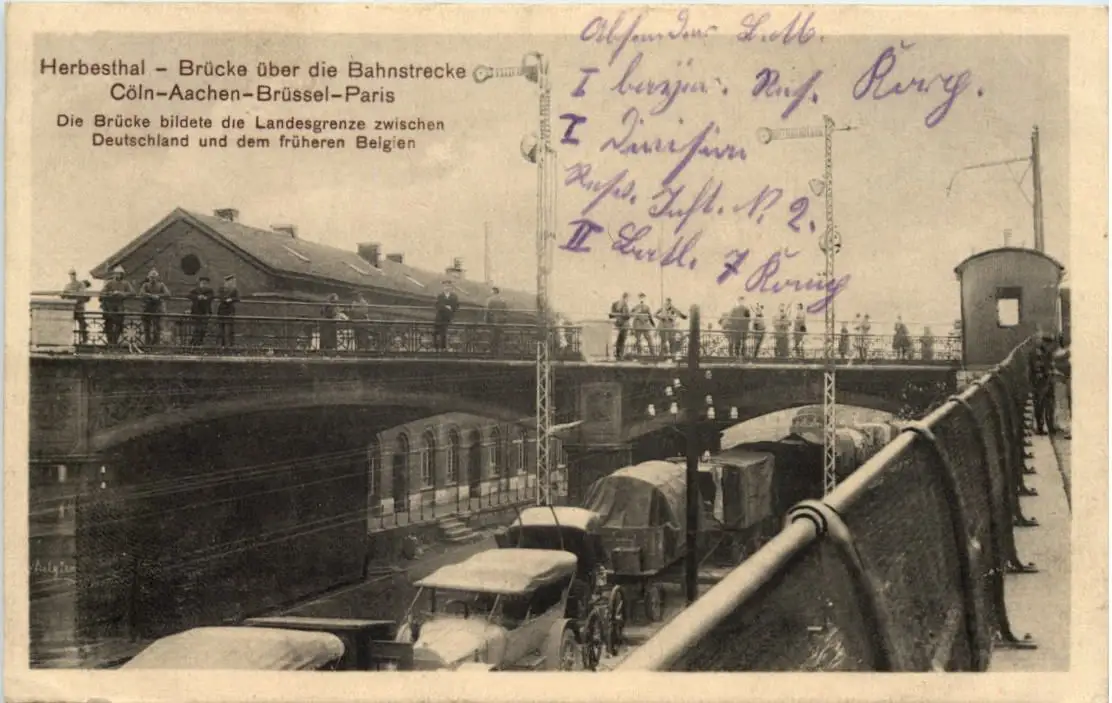 Herbesthal – Brücke über die Bahnstrecke
Cöln–Aachen–Brüssel–Paris
Die Brücke bildete die Landesgrenze zwischen
Deutschland und dem früheren Belgien
Absender L.M.
I bayer. Res. Korp.
I Division
Resv. Inft. N. 2.
II Batl. 7 Komp